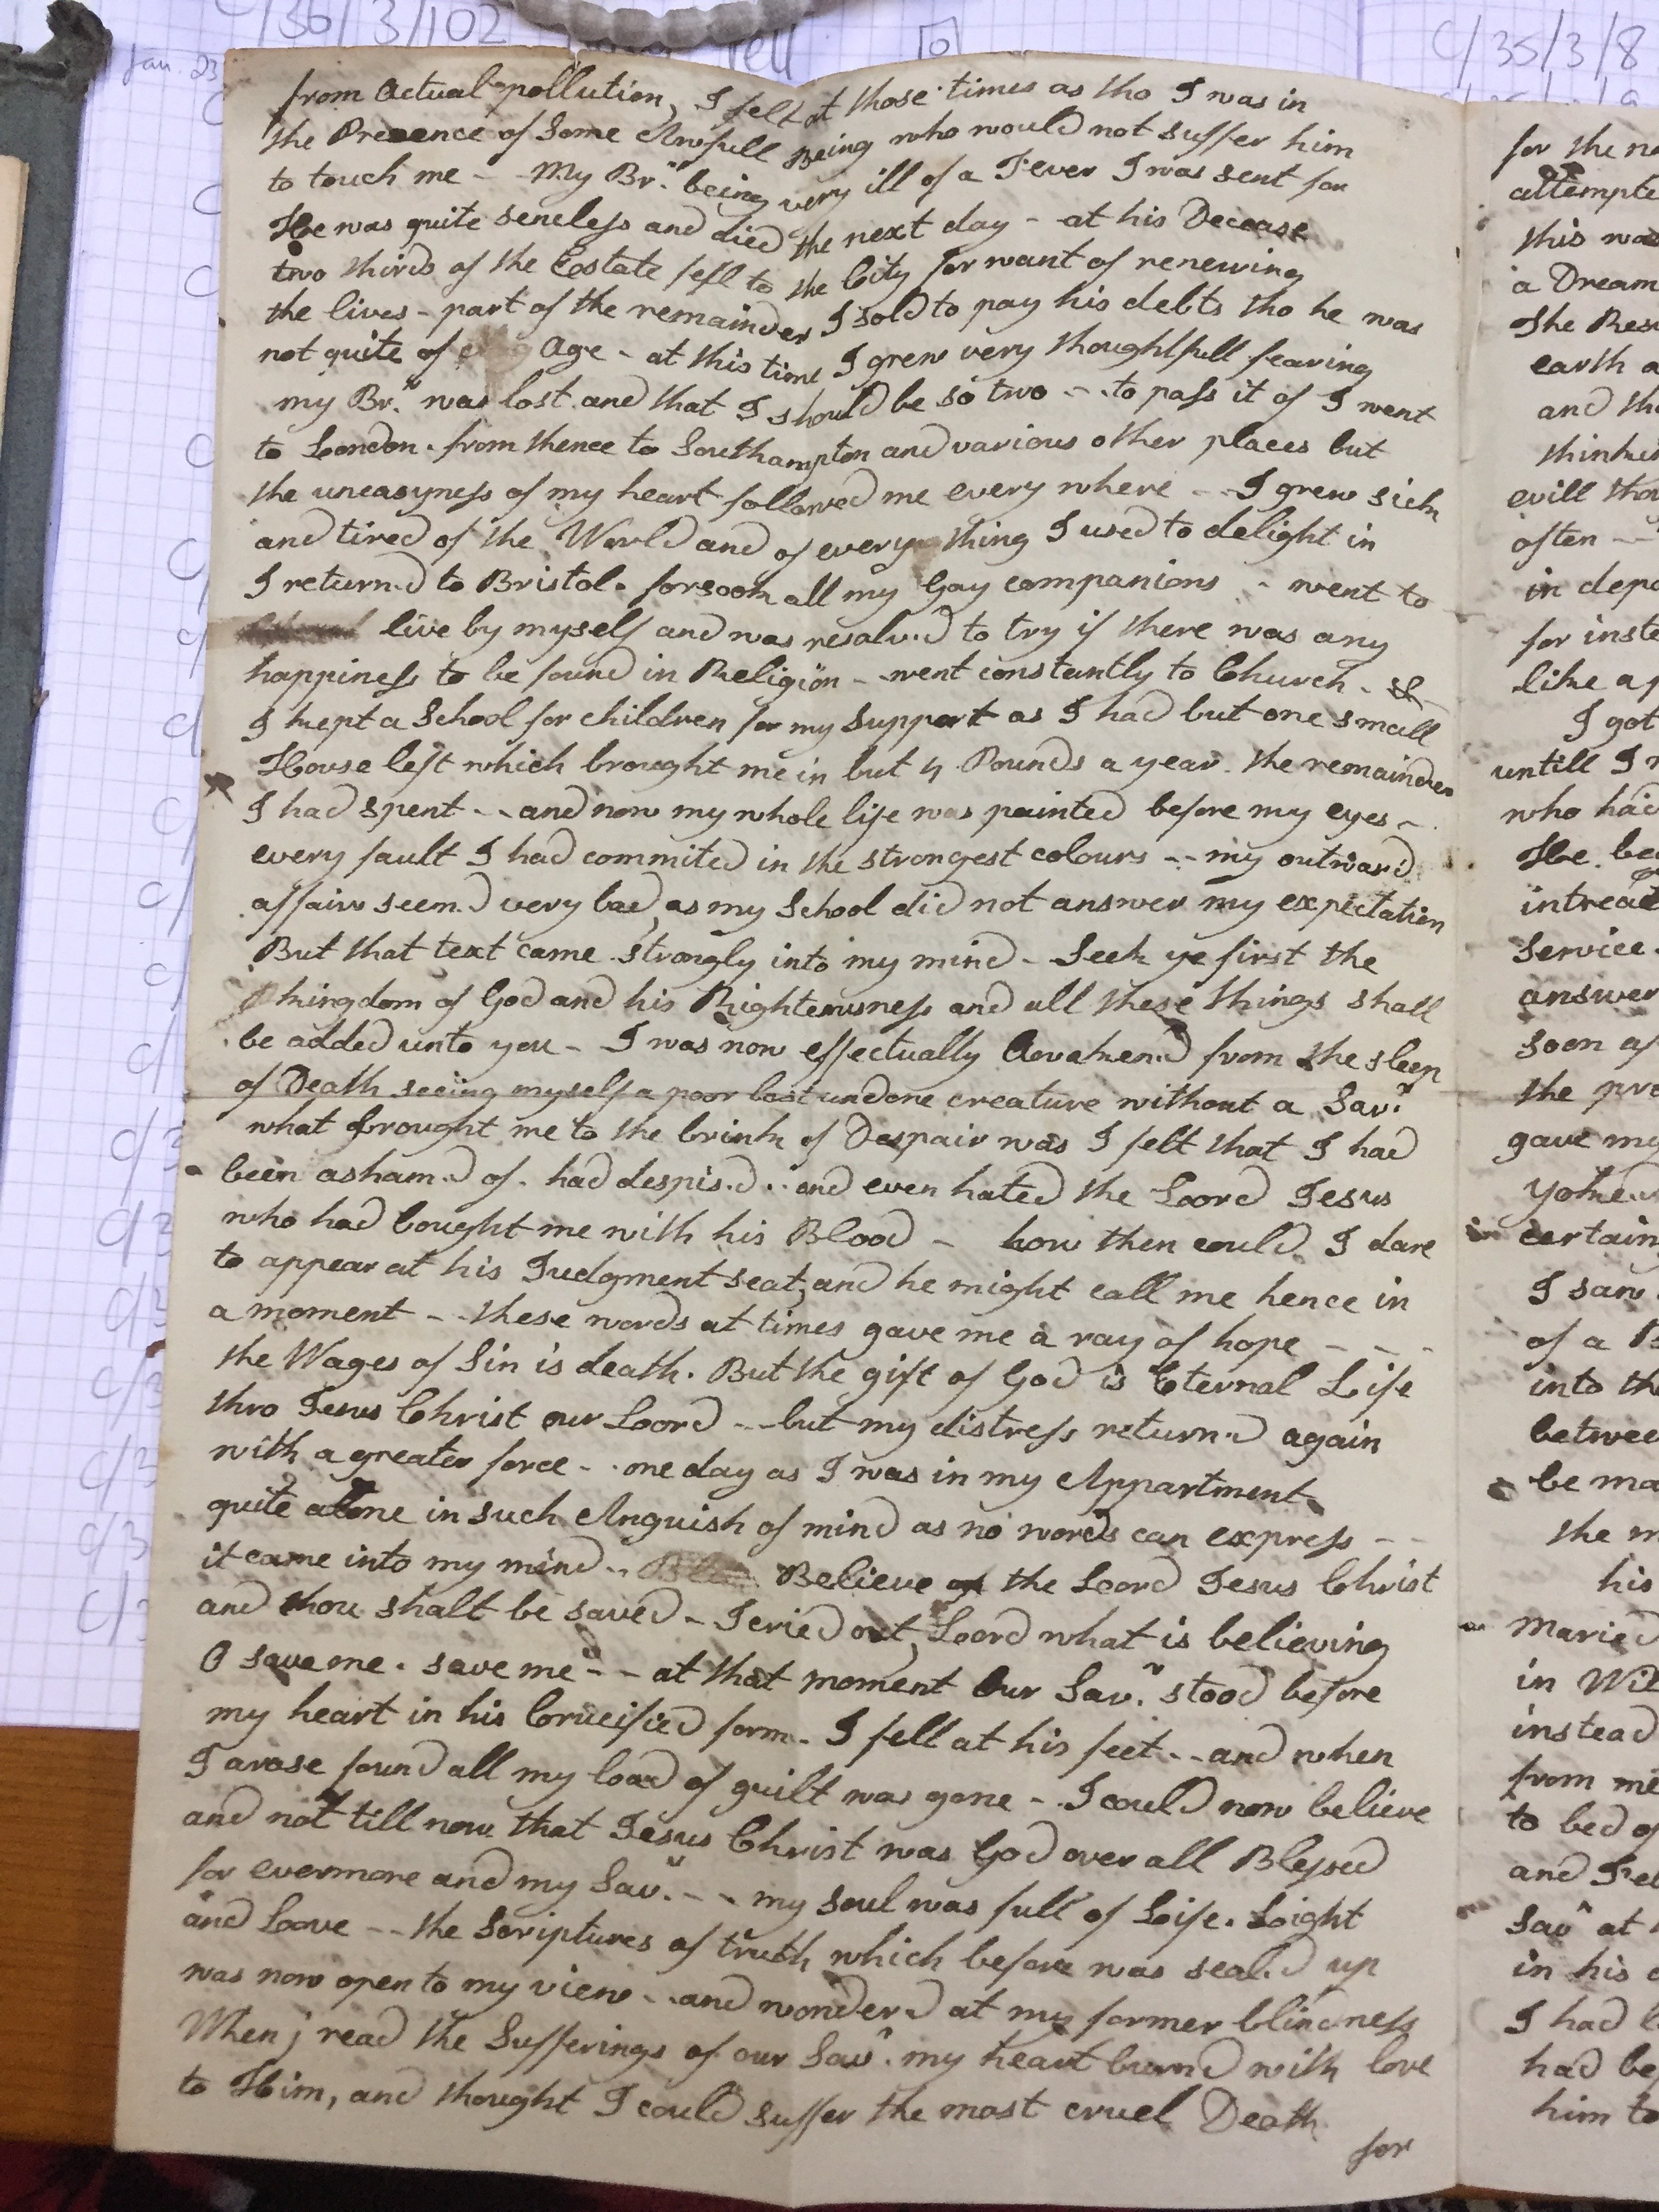 C/36/3/102
C/35/3/8
Jan. 23
from Actual pollution, I felt at those times as tho I was in
the Presence of Some Awfull Being who would not suffer him
to touch me - My Br.r being very ill of a Fever I was sent for
He was quite senceless and died the next day - at his Decease
two thirds of the Estate fell to the City for want of renewing
the lives - part of the remainder I sold to pay his debts tho he was
not quite of Age - at this time I grew very thoughtfull fearing
my Br.r was lost and that I should be so two - - to pass it of I went
to London. from thence to Southampton and various other places but
the uneasyness of my heart followed me every where - - I grew sick
and tired of the World and of every thing I used to delight in
I return.d to Bristol. forsook all my Gay companions - went to
live by myself and was resolv.d to try if there was any
happiness to be found in Religion - - went constantly to Church -
I kept a School for children for my Support as I had but one small
House left which brought me in but 4 Pounds a year. the remainder
I had spent - - and now my whole life was painted before my eyes -
every fault I had commited in the strongest colours - - my outward
affairs seem.d very bad, as my School did not answer my expectation
But that text came strongly into my mind - Seek ye first the
kingdom of God and his Righteousness and all these things shall
be added unto you - I was now effectually Awaken.d from the sleep
of Death seeing myself a poor lost undone creature without a Sav.r
what brought me to the brink of Despair was I felt that I had
been asham.d of. had despis.d.. and even hated the Loord Jesus
who had bought me with his Blood - how then could I dare
to appear at his Judgment seat, and he might call me hence in
a moment - - these words at times gave me a ray of hope - - -
the Wages of Sin is death. But the gift of God is Eternal Life
thro Jesus Christ our Loord - - but my distress return.d again
with a greater force - . one day as I was in my Appartment
quite alone in such Anguish of mind as no words can express - -
it came into my mind .. Believe on the Loord Jesus Christ
and thou shalt be saved - I cried out, Loord what is believing
O save me. save me - - at that moment Our Sav.r stood before
my heart in his Crucified form - I fell at his feet . - and when
I arose found all my load of guilt was gone - I could now believe
and not till now that Jesus Christ was God over all Blessed
for evermore and my Sav.r - - my soul was full of Life. Light
and Loove - - the Scriptures of truth which before was seal.d up
was now open to my view - . and wonder.d at my former blindness
When j read the Sufferings of our Sav.r my heart burn.d with love
to Him, and thought I could suffer the most cruel Death
for
for the
this was
a Dream
earth
and
evill
often - -
for
I got
untill I
who had
He
Service.
answer
soon
gave my
I saw
of a
into
be
his
Maried
in
instead
from me
to bed
and
Sav.r at
in his
I had
had
him to